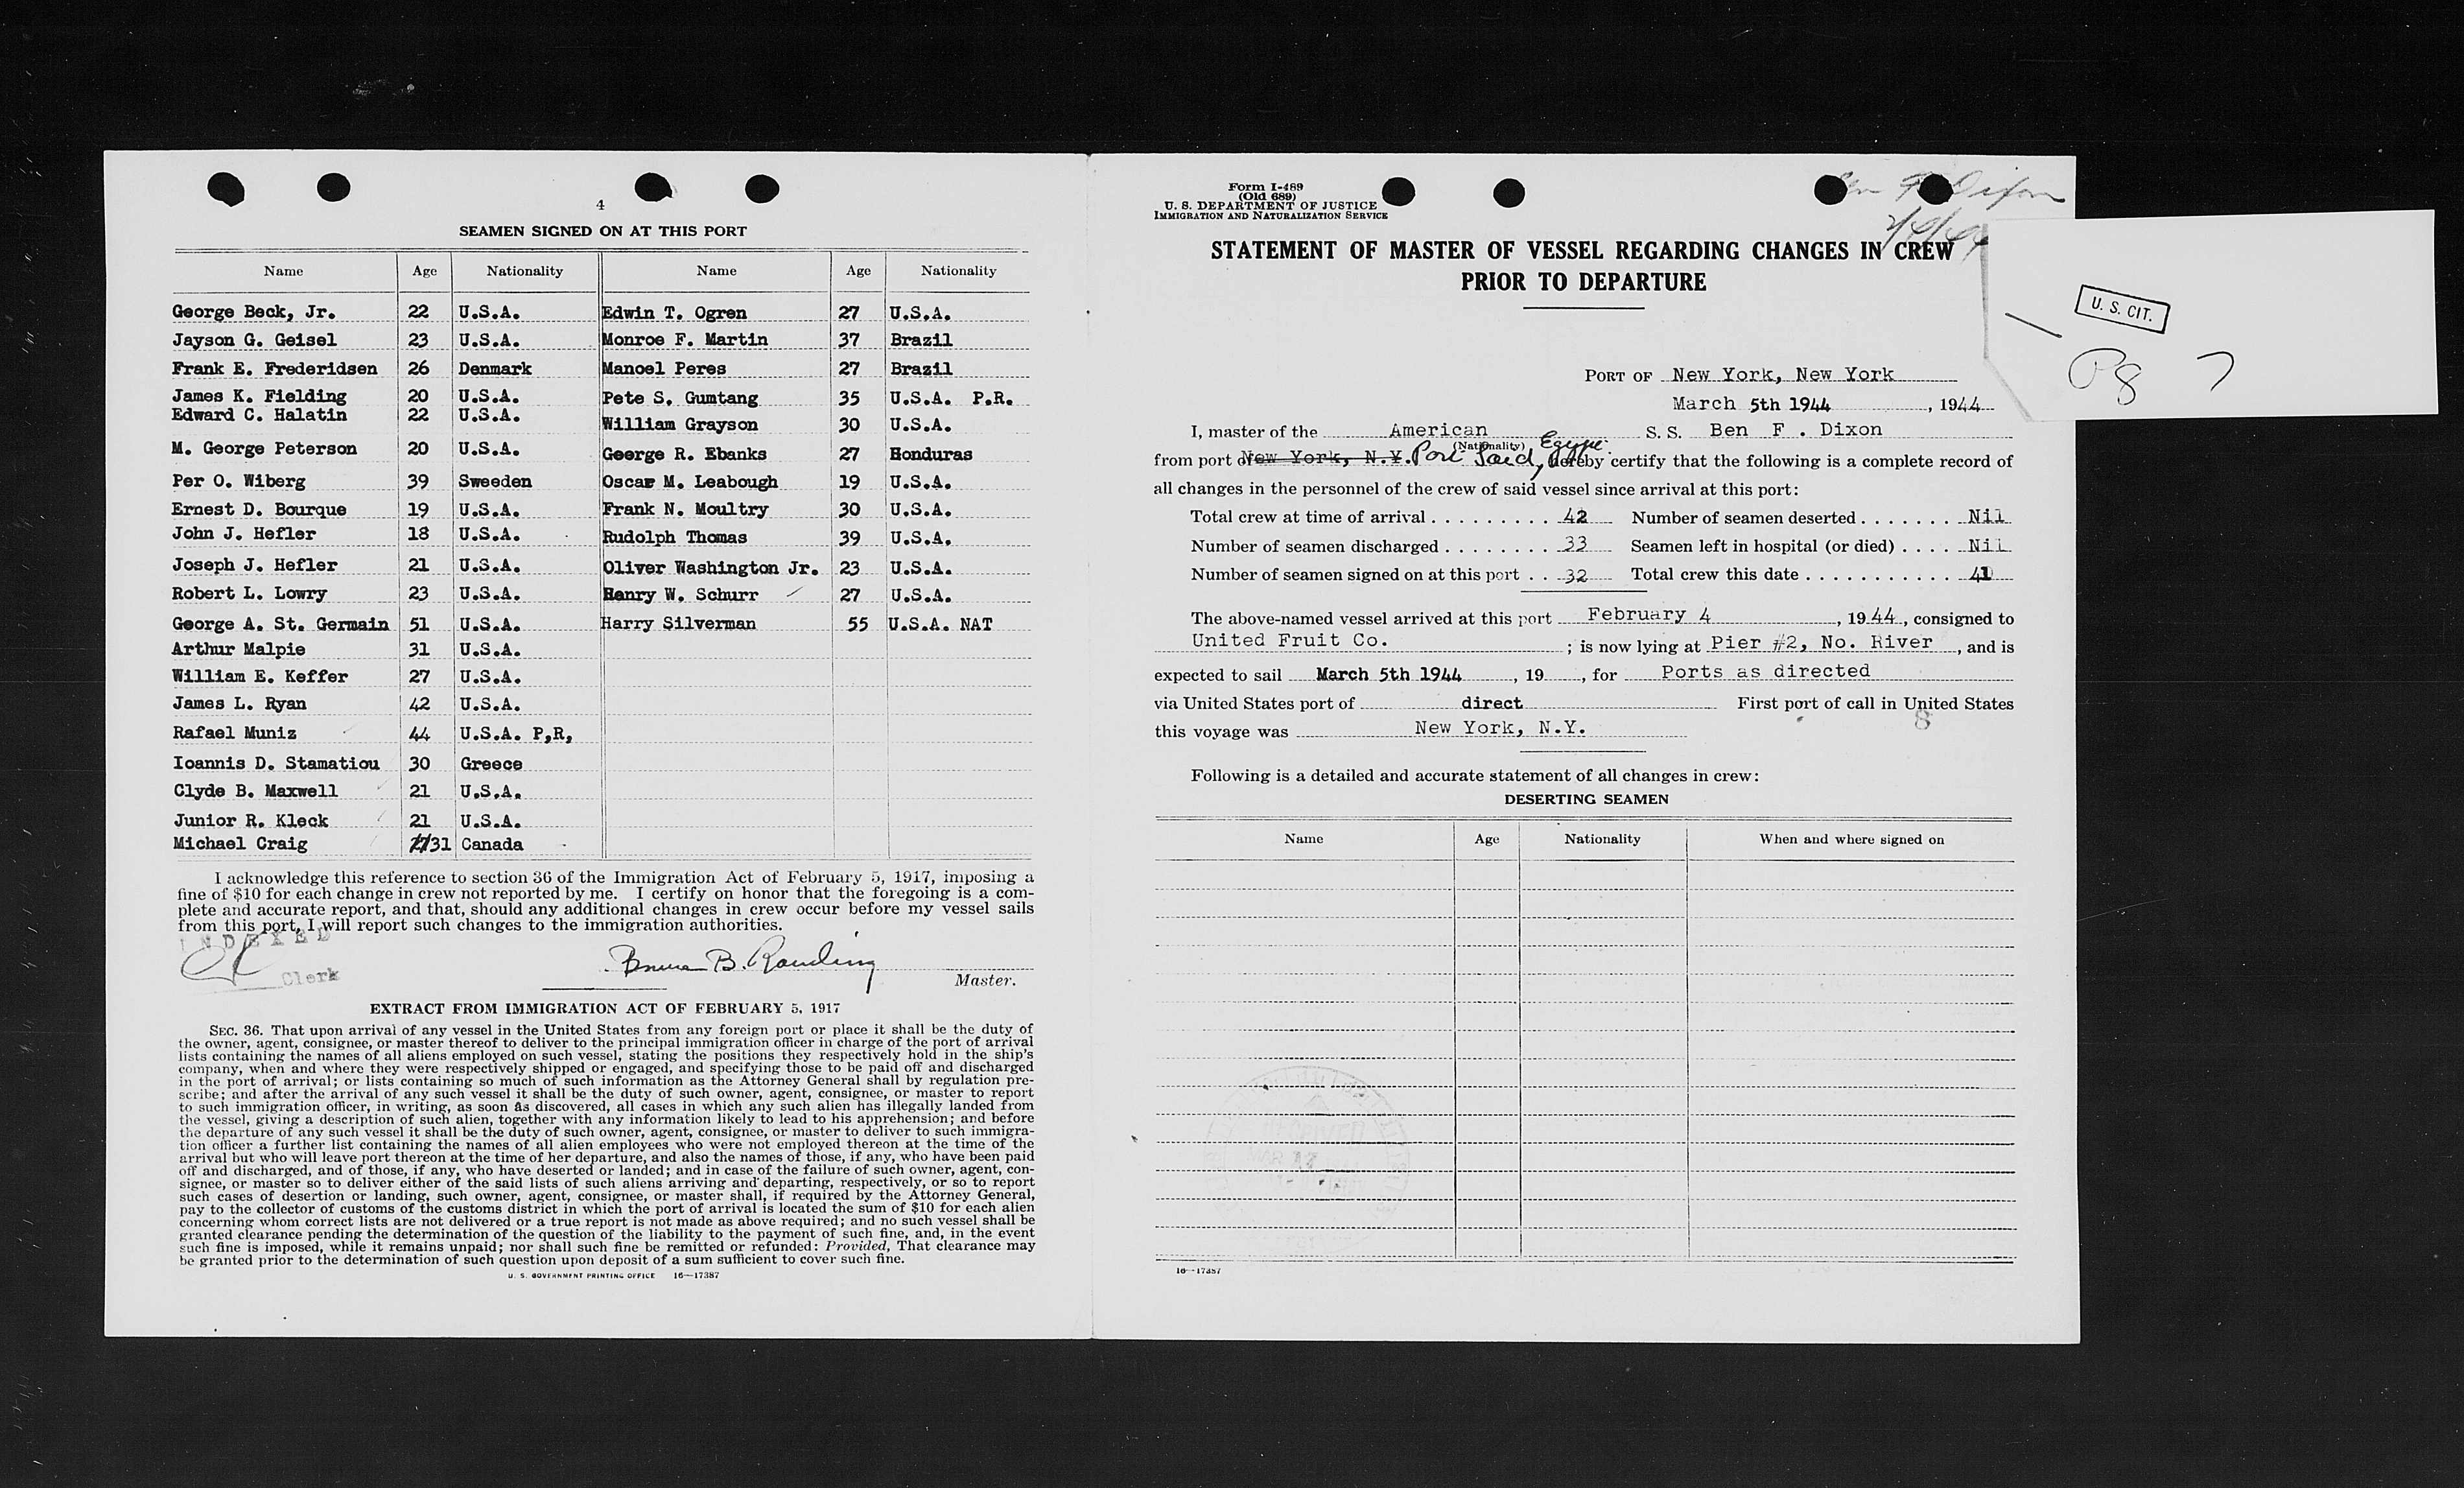 4
SEAMEN SIGNED ON AT THIS PORT
Name Age Nationality Name Age Nationality
George Beck, Jr. 22 U.S.A. Edwin T. Ogren 27 U.S.A.
Jayson G. Geisel 23 U.S.A. Monroe F. Martin 37 Brazil
Frank E. Frederidsen 26 Denmark Manoel Peres 27 Brazil
James K. Fielding 20 U.S.A. Pete S. Gumtang 35 U.S.A. P.R.
Edward C. Halatin 22 U.S.A. William Grayson 30 U.S.A.
M. George Peterson 20 U.S.A. George R. Ebanks 27 Honduras
Per O. Wiberg 39 Sweeden Oscar M. Leabough 19 U.S.A.
Ernest D. Bourque 19 U.S.A. Frank N. Moultry 30 U.S.A.
John J. Hefler 18 U.S.A. Rudolph Thomas 39 U.S.A.
Joseph J. Hefler 21 U.S.A. Oliver Washington Jr. 23 U.S.A.
Robert L. Lowry 23 U.S.A. Henry W. Schurr 27 U.S.A.
George A. St. Germain 51 U.S.A. Harry Silverman 55 U.S.A. NAT
Arthur Malpie 31 U.S.A.
William E. Keffer 27 U.S.A.
James L. Ryan 42 U.S.A.
Rafael Muniz 44 U.S.A. P,R,
Ioannis D. Stamatiou 30 Greece
Clyde B. Maxwell 21 U.S.A.
Junior R. Kleck 21 U.S.A.
Michael Craig 31 Canada
I acknowledge this reference to section 36 of the Immigration Act of February 5, 1917, imposing a
fine of $10 for each change in crew not reported by me. I certify on honor that the foregoing is a com-
plete and accurate report, and that, should any additional changes in crew occur before my vessel sails
from this port, I will report such changes to the immigration authorities.
INDEXED
Clerk
B. Rawling
Master.
EXTRACT FROM IMMIGRATION ACT OF FEBRUARY 5, 1917
SEC. 36. That upon arrival of any vessel in the United States from any foreign port or place it shall be the duty of
the owner, agent, consignee, or master thereof to deliver to the principal immigration officer in charge of the port of arrival
lists containing the names of all aliens employed on such vessel, stating the positions they respectively hold in the ship's
company, when and where they were respectively shipped or engaged, and specifying those to be paid off and discharged
in the port of arrival; or lists containing so much of such information as the Attorney General shall by regulation pre-
scribe; and after the arrival of any such vessel it shall be the duty of such owner, agent, consignee, or master to report
to such immigration officer, in writing, as soon as discovered, all cases in which any such alien has illegally landed from
the vessel, giving a description of such alien, together with any information likely to lead to his apprehension; and before
the departure of any such vessel it shall be the duty of such owner, agent, consignee, or master to deliver to such immigra-
tion officer a further list containing the names of all alien employees who were not employed thereon at the time of the
arrival but who will leave port thereon at the time of her departure, and also the names of those, if any, who have been paid
off and discharged, and of those, if any, who have deserted or landed; and in case of the failure of such owner, agent, con-
signee, or master so to deliver either of the said lists of such aliens arriving and departing, respectively, or so to report
such cases of desertion or landing, such owner, agent, consignee, or master shall, if required by the Attorney General,
pay to the collector of customs of the customs district in which the port of arrival is located the sum of $10 for each alien
concerning whom correct lists are not delivered or a true report is not made as above required; and no such vessel shall be
granted clearance pending the determination of the question of the liability to the payment of such fine, and, in the event
such fine is imposed, while it remains unpaid; nor shall such fine be remitted or refunded: Provided, That clearance may
be granted prior to the determination of such question upon deposit of a sum sufficient to cover such fine.
U. S. GOVERNMENT PRINTING OFFICE 16—17387
Form I-489
(Old 689)
U. S. DEPARTMENT OF JUSTICE
IMMIGRATION AND NATURALIZATION SERVICE
Ben F. Dixon
2/4/44
STATEMENT OF MASTER OF VESSEL REGARDING CHANGES IN CREW
PRIOR TO DEPARTURE
U. S. CIT.
Pg 7
PORT OF New York, New York
March 5th 1944, 1944
I, master of the American S. S. Ben F . Dixon
(Nationality)
from port of New York, N.Y. Port Said, Egypt. hereby certify that the following is a complete record of
all changes in the personnel of the crew of said vessel since arrival at this port:
Total crew at time of arrival . . . . . . . . . 42 Number of seamen deserted . . . . . . . Nil
Number of seamen discharged . . . . . . . . 33 Seamen left in hospital (or died) . . . . Nil
Number of seamen signed on at this port . . 32 Total crew this date . . . . . . . . . . . 41
The above-named vessel arrived at this port February 4, 1944, consigned to
United Fruit Co. ; is now lying at Pier #2, No. River, and is
expected to sail March 5th 1944, 19 , for Ports as directed
via United States port of direct First port of call in United States
8
this voyage was New York, N.Y.
Following is a detailed and accurate statement of all changes in crew:
DESERTING SEAMEN
Name Age Nationality When and where signed on
RECEIVED
MAR 17
16—17387